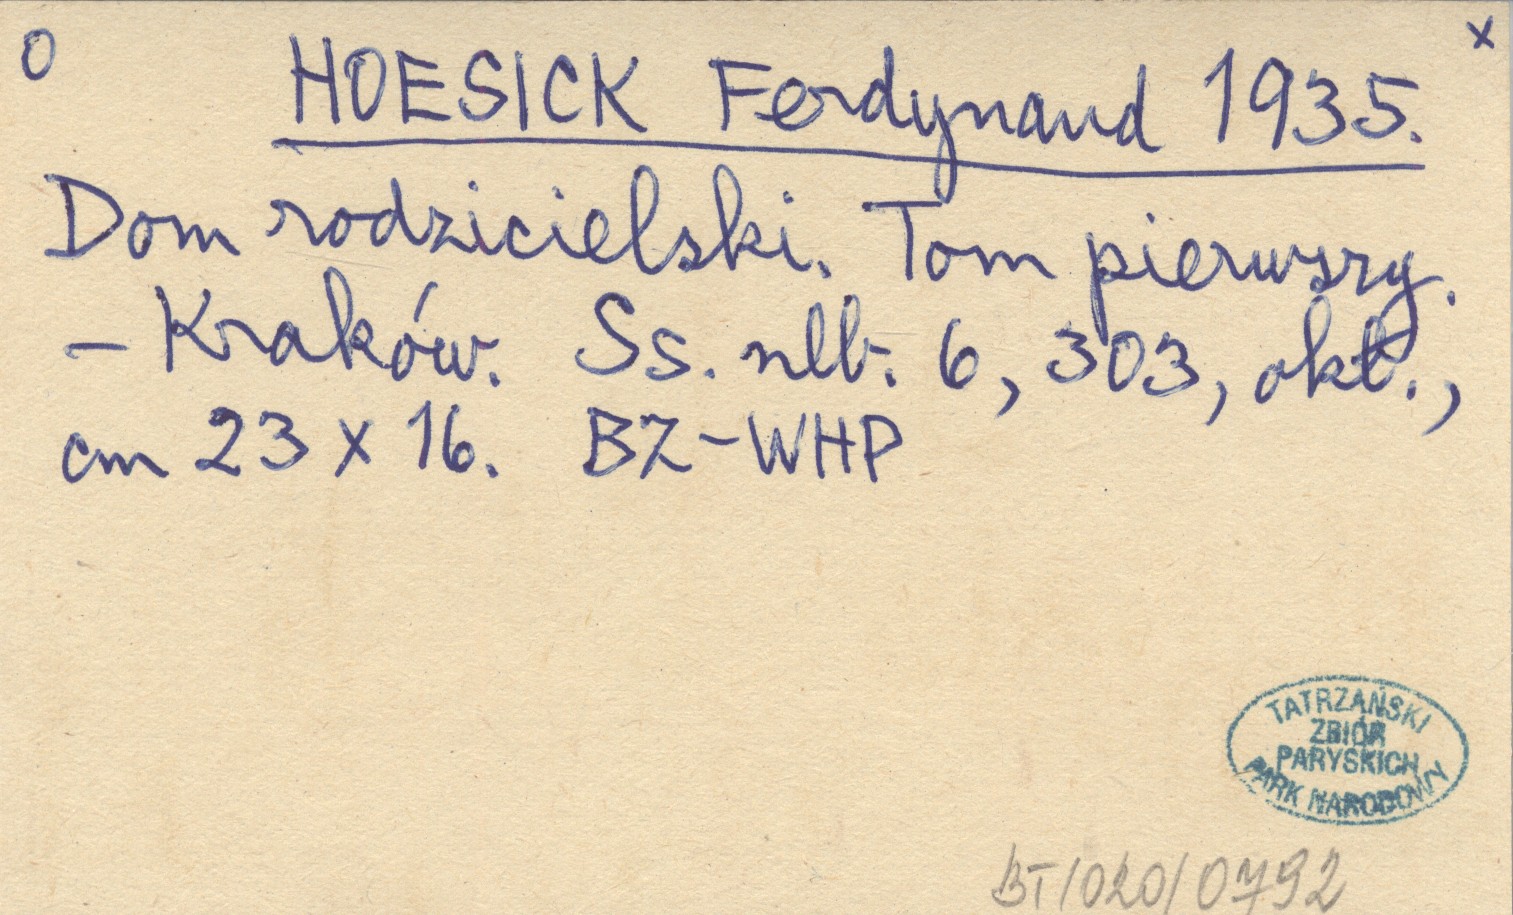 O x
HOESICK Ferdynand 1935.
Dom rodzicielski. Tom pierwszy.
– Kraków. Ss. nlb. 6, 303, okł.,
cm 23 x 16. BZ-WHP
TATRZAŃSKI
ZBIÓR
PARYSKICH
PARK NARODOWY
BT/020/0792